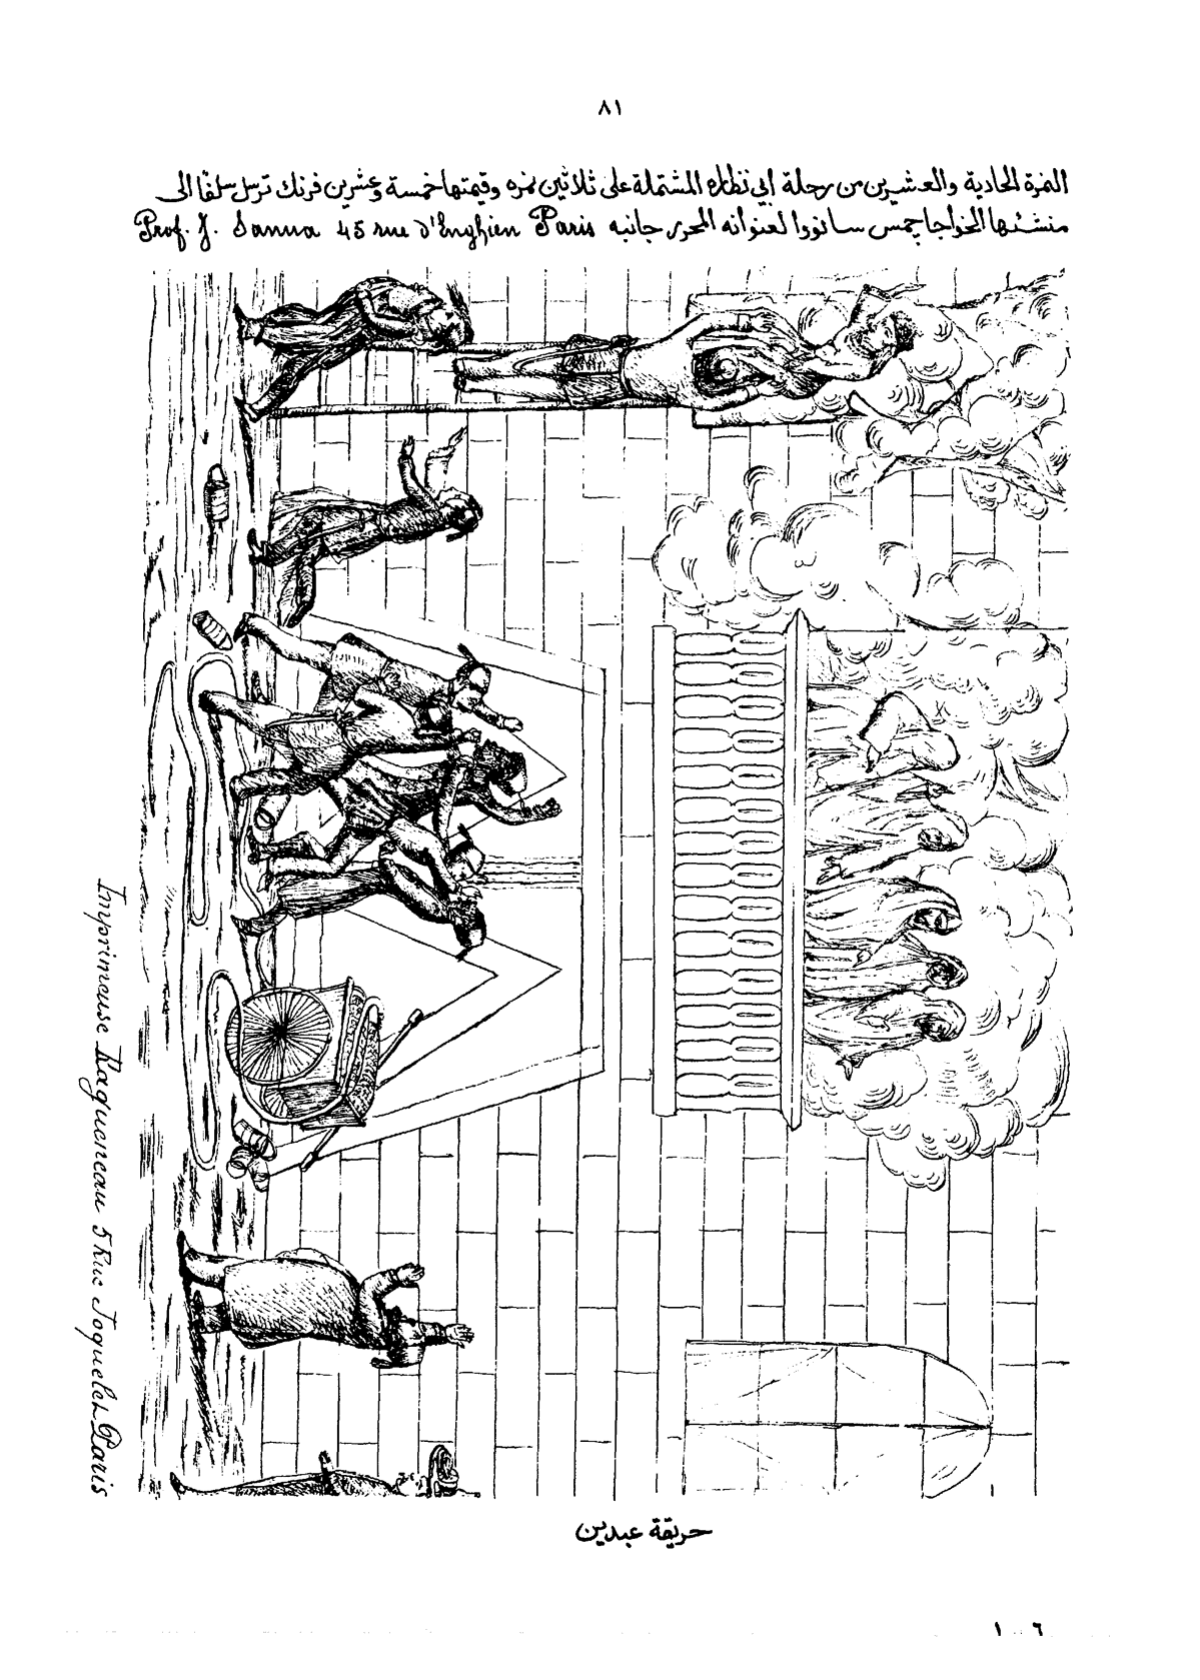 ٨١
النمرة الحادية والعشرين من رحلة ابي نظاره المشتملة على ثلاثين نمره وقيمتها خمسة وعشرين فرنك ترسل سلفا الى
منشئها الخواجا جمس سانووا لعنوانه المحرر جانبه Prof. J. Sanua 45 rue d'Enghien Paris
Imprimeuse Ragueneau 5 Rue Joquelet Paris
حريقة عبدين
١٠٦